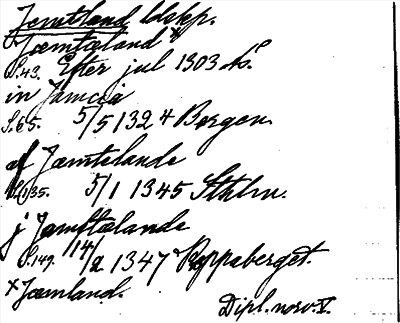 Jemtland ldskp.
Jæmtaland x
S.43. Efter jul 1303 A.
in Jamcia
S.65. 5/5 1324 Bergen.
af Jæmtelande
S.135. 5/1 1345 Sthlm.
j Jæmftalande
S.149. 14/2 1347 Kopparberget.
x Jæmland.
Dipl. norv. V.